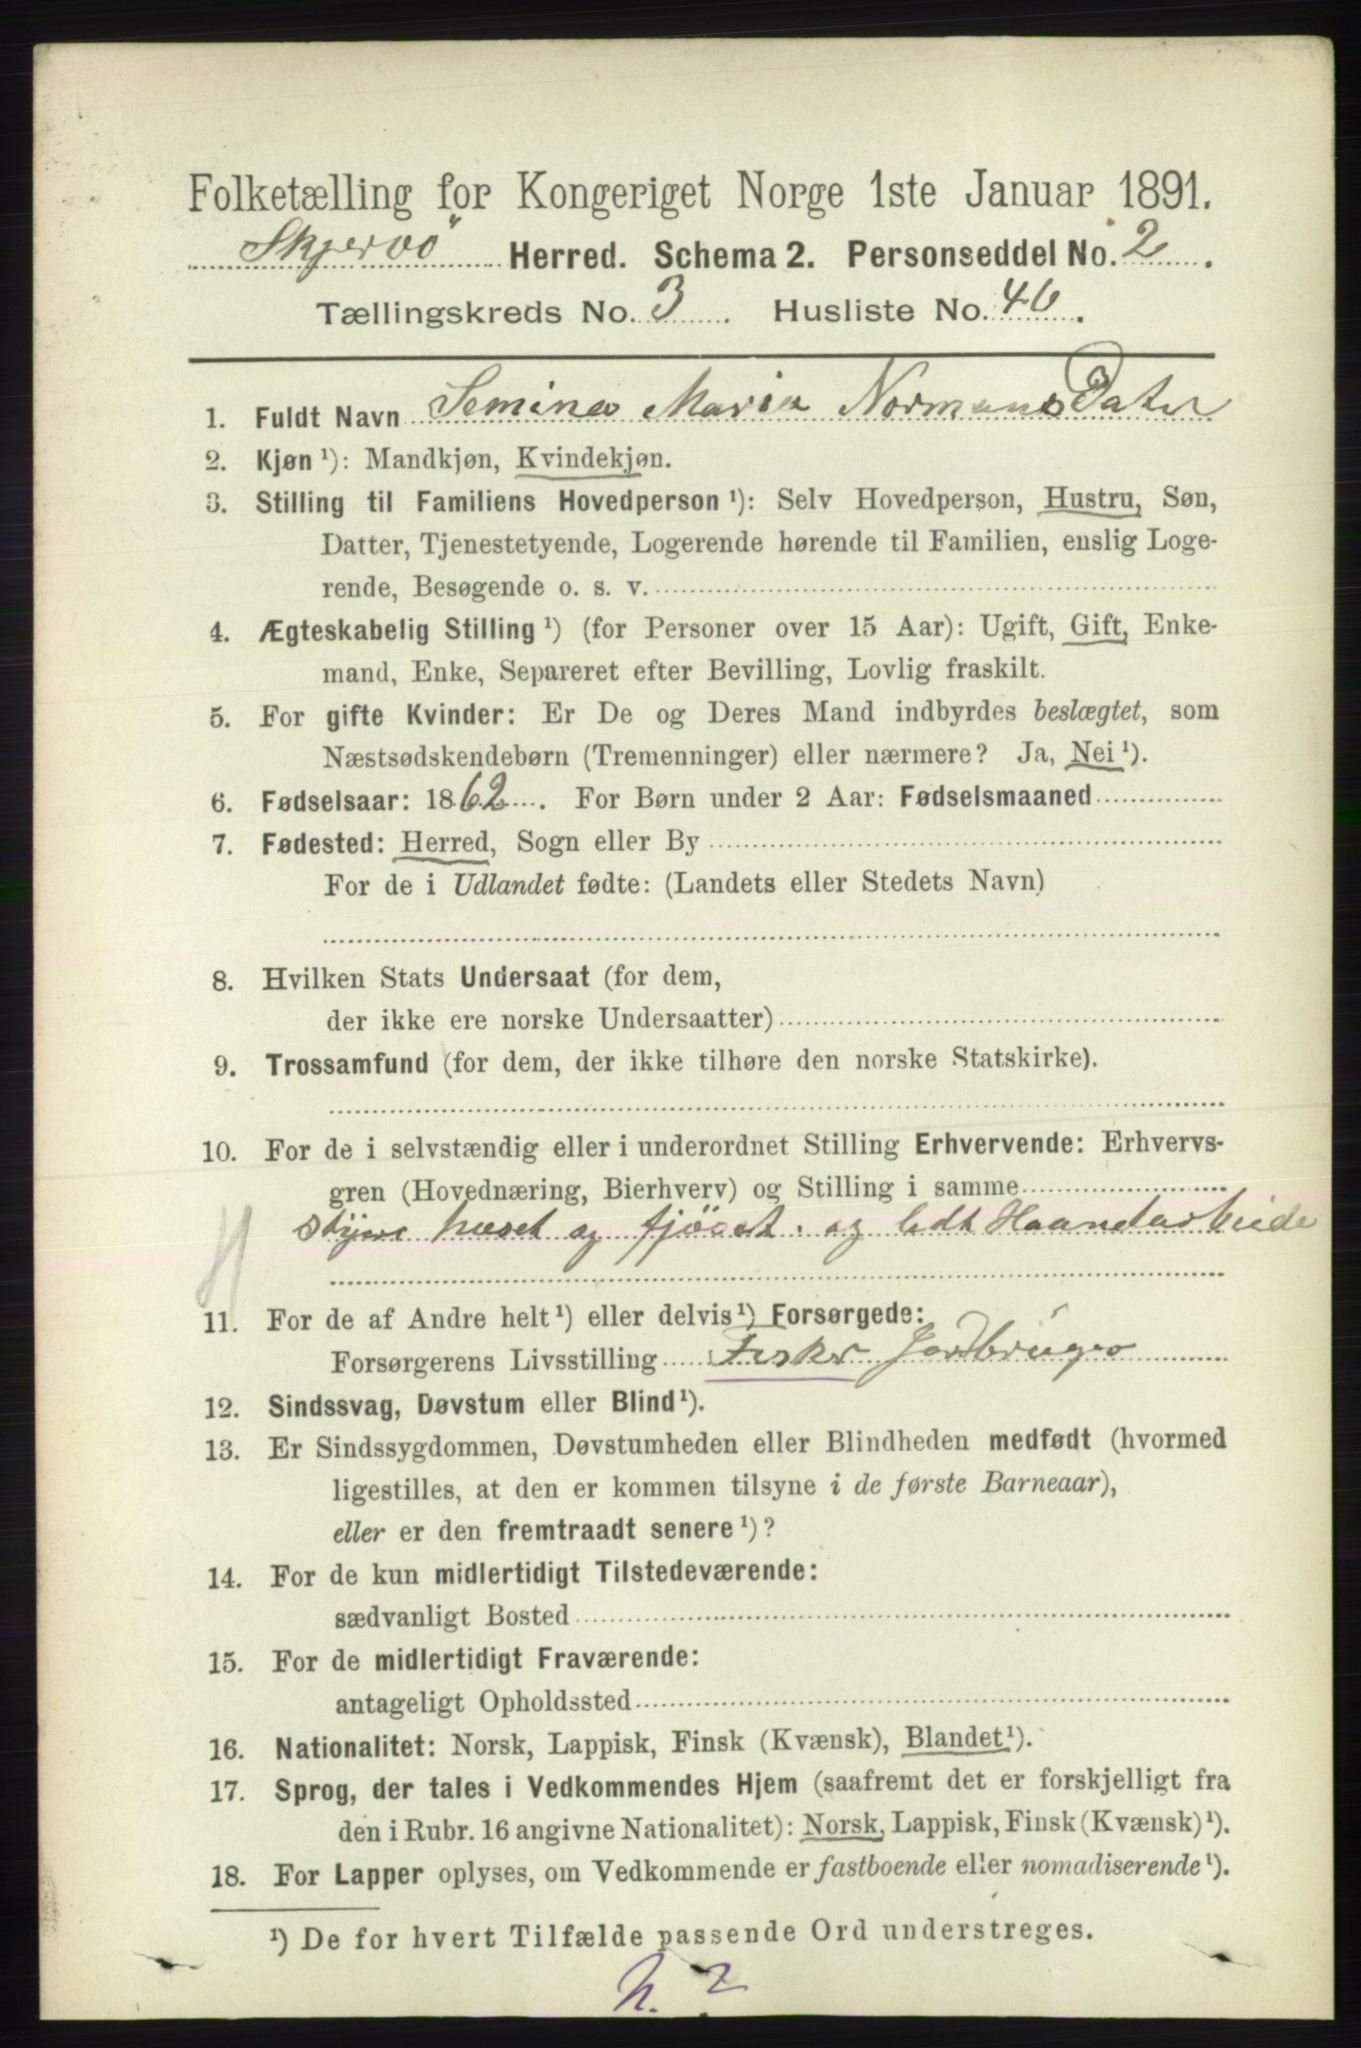 Folketælling for Kongeriget Norge 1ste Januar 1891.
Skjervö Herred. Schema 2. Personseddel No. 2.
Tællingskreds No. 3. Husliste No. 46.
1. Fuldt Navn Semina Maria Normans Dater
2. Kjøn ¹): Mandkjøn, Kvindekjøn.
3. Stilling til Familiens Hovedperson ¹): Selv Hovedperson, Hustru, Søn,
Datter, Tjenestetyende, Logerende hørende til Familien, enslig Loge-
rende, Besøgende o. s. v.
4. Ægteskabelig Stilling ¹) (for Personer over 15 Aar): Ugift, Gift, Enke-
mand, Enke, Separeret efter Bevilling, Lovlig fraskilt.
5. For gifte Kvinder: Er De og Deres Mand indbyrdes beslægtet, som
Næstsødskendebørn (Tremenninger) eller nærmere? Ja, Nei ¹).
6. Fødselsaar: 1862. For Børn under 2 Aar: Fødselsmaaned
7. Fødested: Herred, Sogn eller By
For de i Udlandet fødte: (Landets eller Stedets Navn)
8. Hvilken Stats Undersaat (for dem,
der ikke ere norske Undersaatter)
9. Trossamfund (for dem, der ikke tilhøre den norske Statskirke).
10. For de i selvstændig eller i underordnet Stilling Erhvervende: Erhvervs-
gren (Hovednæring, Bierhverv) og Stilling i samme
huset og fjöset og Haandarbeide
11. For de af Andre helt ¹) eller delvis ¹) Forsørgede:
Forsørgerens Livsstilling Fisker Jordbruger
12. Sindssvag, Døvstum eller Blind ¹).
13. Er Sindssygdommen, Døvstumheden eller Blindheden medfødt (hvormed
ligestilles, at den er kommen tilsyne i de første Barneaar),
eller er den fremtraadt senere ¹)?
14. For de kun midlertidigt Tilstedeværende:
sædvanligt Bosted
15. For de midlertidigt Fraværende:
antageligt Opholdssted
16. Nationalitet: Norsk, Lappisk, Finsk (Kvænsk), Blandet ¹).
17. Sprog, der tales i Vedkommendes Hjem (saafremt det er forskjelligt fra
den i Rubr. 16 angivne Nationalitet): Norsk, Lappisk, Finsk (Kvænsk) ¹).
18. For Lapper oplyses, om Vedkommende er fastboende eller nomadiserende ¹).
¹) De for hvert Tilfælde passende Ord understreges.